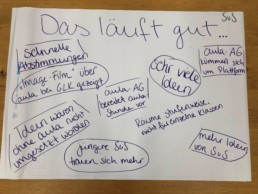 SuS
Das läuft gut...
schnelle
Abstimmungen
"Image-Film" über
aula bei GLK gezeigt
Sehr viele
Ideen
aula-AG
kümmert sich
um Plattform
aula AG
bereitet aula
Stunde vor
Ideen wären
ohne aula nicht
umgesetzt worden
Räume stufenweise,
nicht für einzelne Klassen
jüngere SuS
trauen sich mehr
mehr Ideen
von SuS